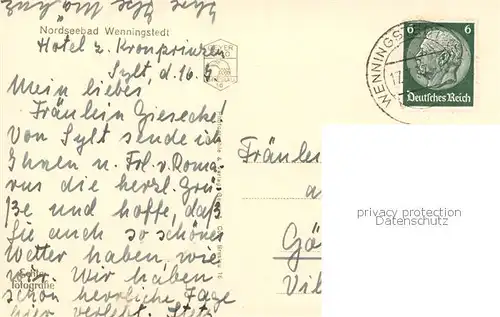 Nordseebad Wenningstedt
Hotel z. Kronprinzen
Sylt, d. 16.
Mein liebes
Fräulein Giesecke!
Von Sylt sende ich
Ihnen u. Frl. v. Roma-
rus die herzl. Grü-
ße und hoffe, daß
Sie auch so schönes
Wetter haben, wie
wir. Wir haben
schon herrliche Tage
hier verlebt. Stets
Echte
fotografie
WENNINGST
17.
6 6
Deutsches Reich
Fräulein
privacy protection
Datenschutz